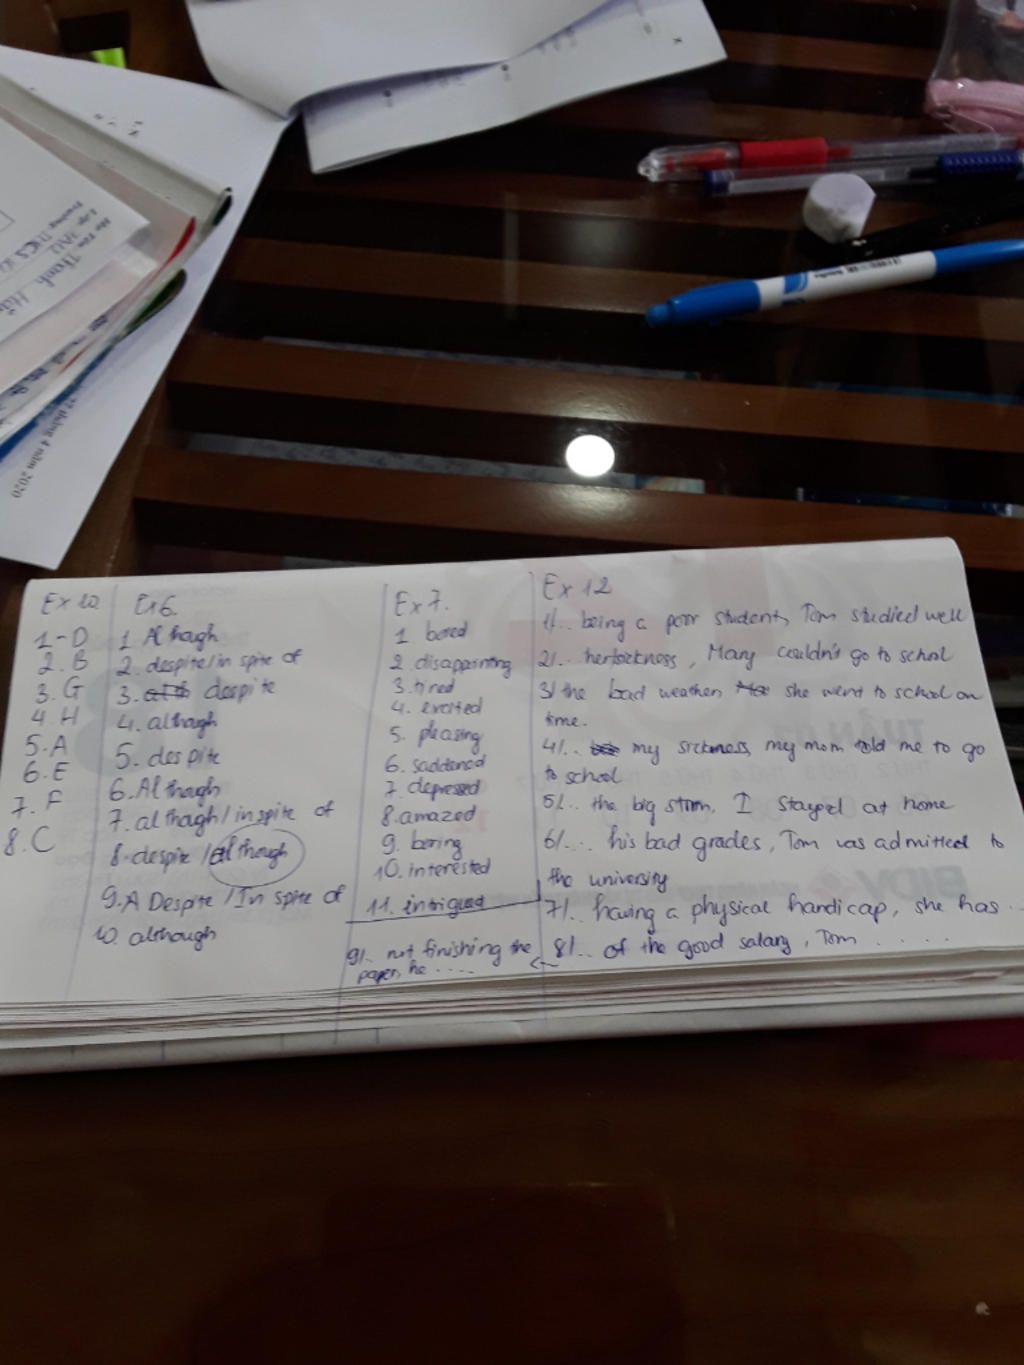 27 tháng 4 năm 2020
Ex 10
1-D
2. B
3. G
4. H
5. A
6. E
7. F
8. C
Ex 6.
1. Although
2. despite/in spite of
3. despite
4. although
5. despite
6. Although
7. although/in spite of
8. despite / although
9. A Despite / In spite of
10. although
Ex 7.
1 bored
2. disappointing
3. tired
4. excited
5. pleasing
6. saddened
7. depressed
8. amazed
9. boring
10. interested
11. intrigued
Ex 12
1/.. being a poor student, Tom studied well
2/.. her sickness, Mary couldn't go to school
3/ the bad weather she went to school on
time.
4/.. my sickness, my mom told me to go
to school
5/.. the big storm, I stayed at home
6/... his bad grades, Tom was admitted to
the university
7/.. having a physical handicap, she has ..
8/.. of the good salary, Tom .....
9/.. not finishing the
paper, he ....
TUẦN
BIDV